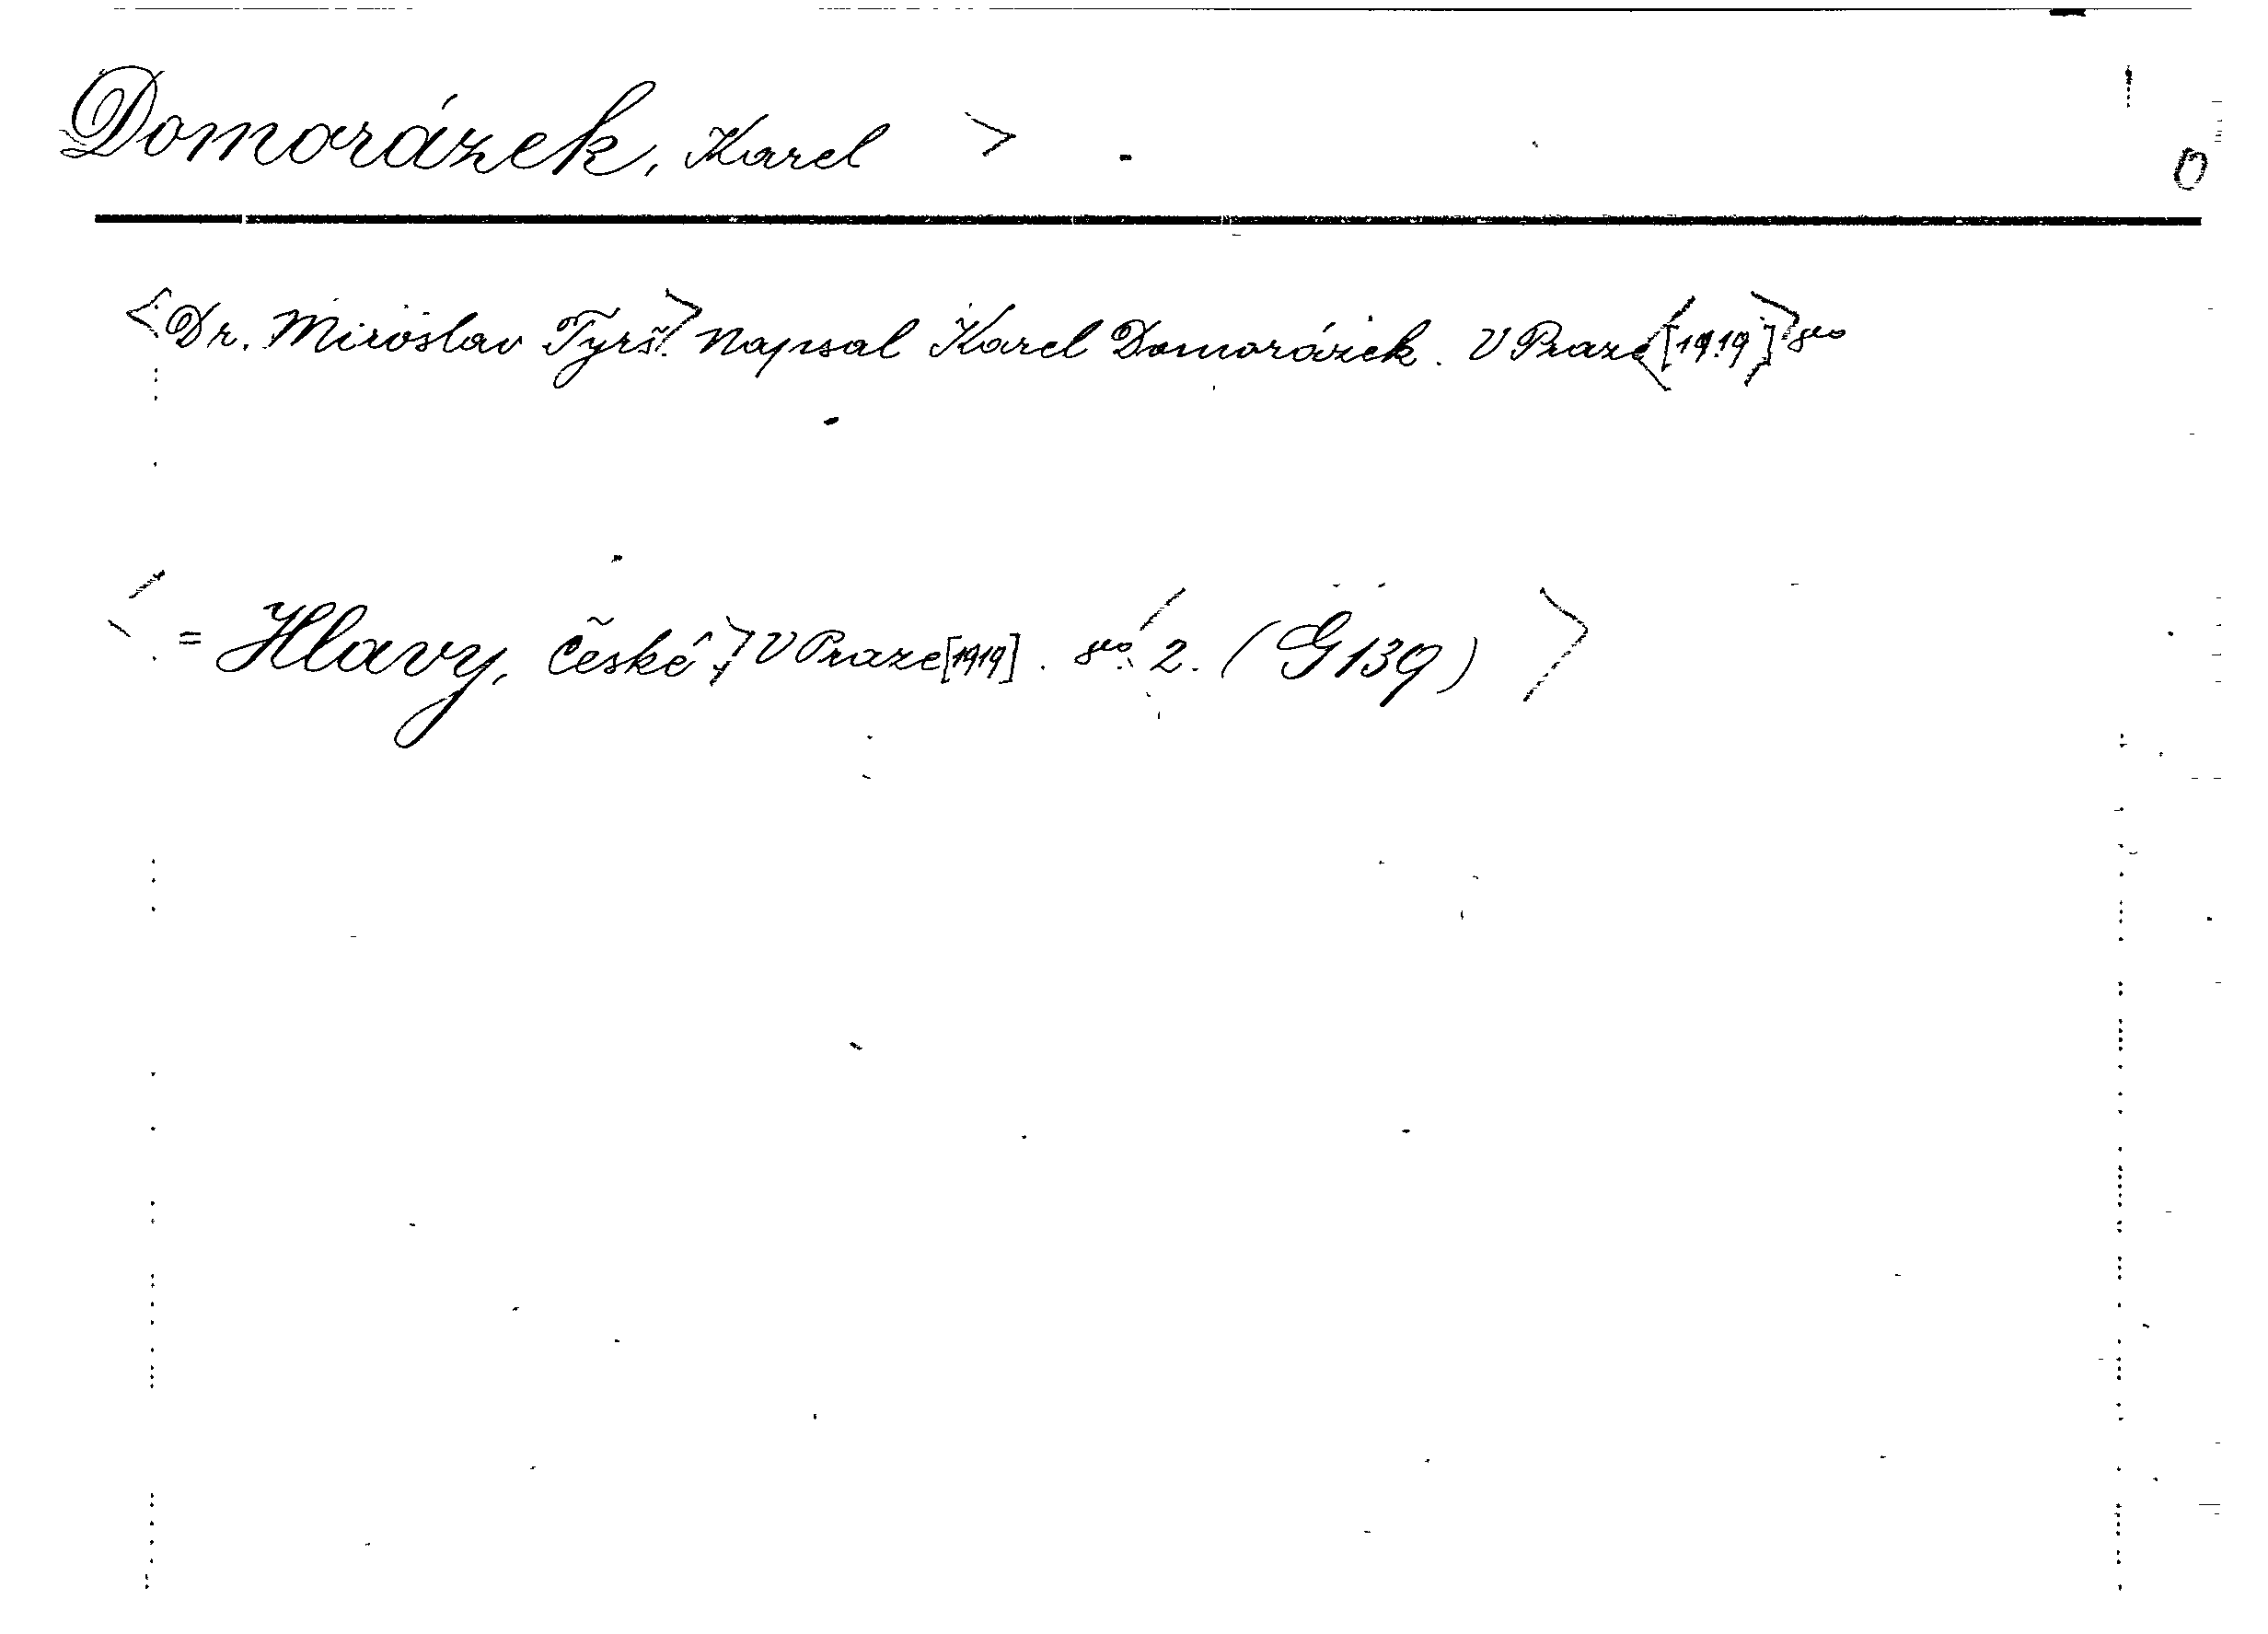 Domorázek, Karel > 0
<Dr. Miroslav Tyrš.> Napsal Karel Domorázek. V Praze <[1919]> 8vo
<= Hlavy, České.> V Praze [1919]. 8vo. <2. (G139)>